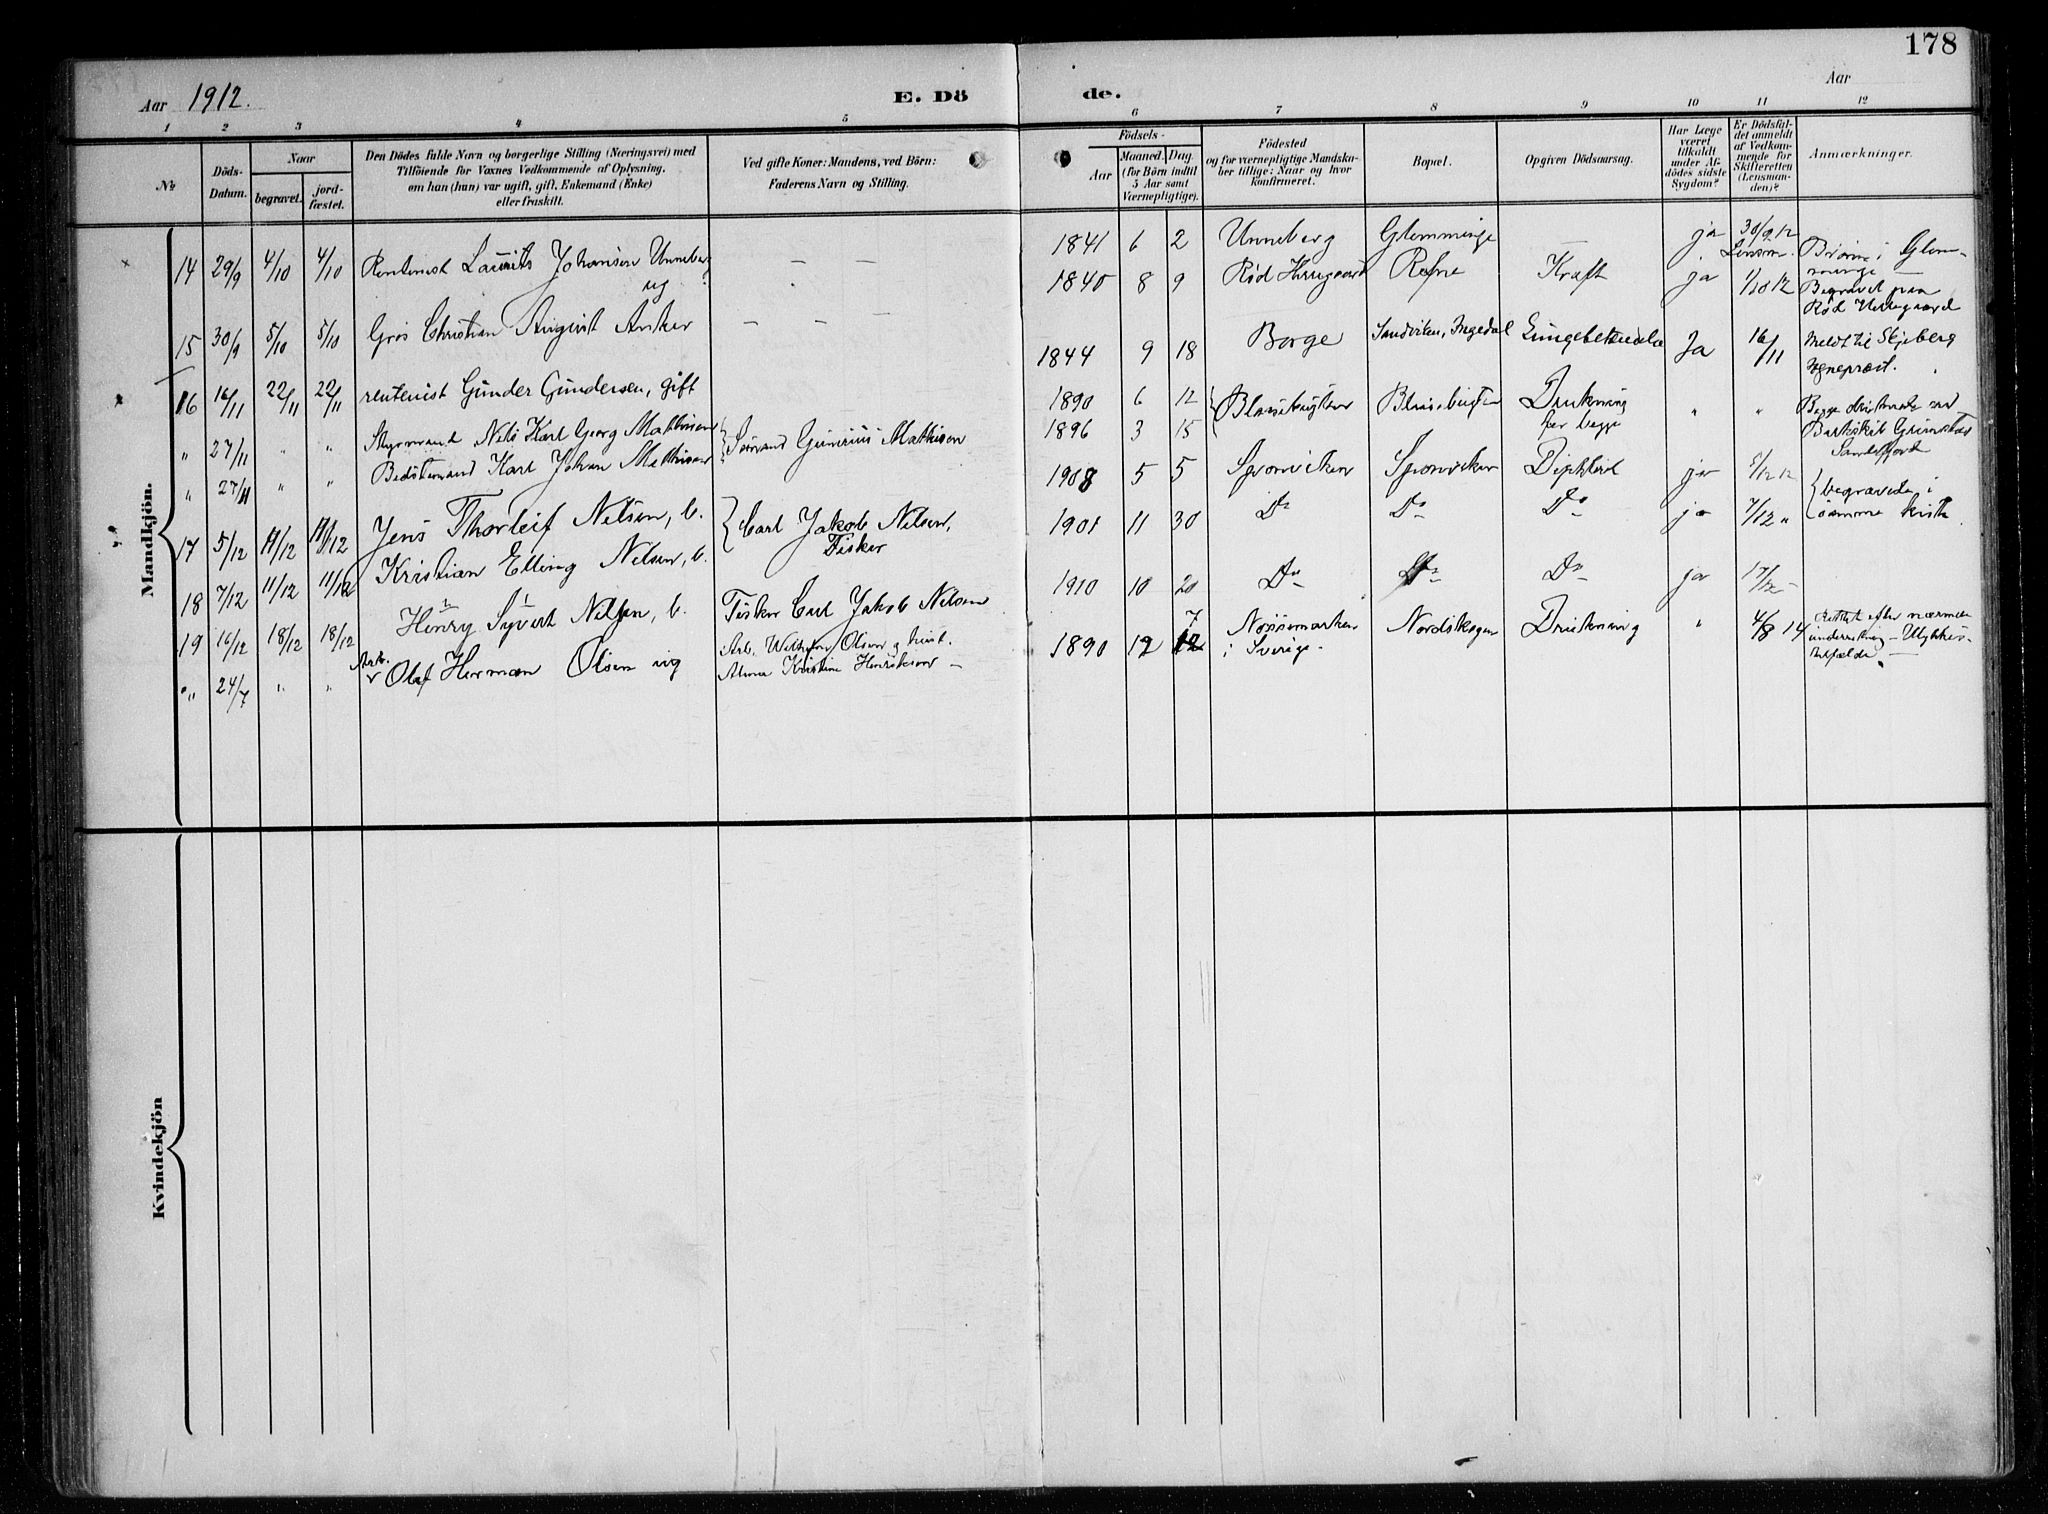 178
Aar 1912. E. Dö de. Aar
1 2 3 4 5 6 7 8 9 10 11 12
Nr
Döds-Datum.
Naar
begravet.
jord-fæstet.
Den Dödes fulde Navn og borgerlige Stilling (Næringsvei) med
Tilföiende for Voxnes Vedkommende af Oplysning.
om han (hun) var ugift, gift, Enkemand (Enke)
eller fraskilt.
Ved gifte Koner: Mandens, ved Börn:
Faderens Navn og Stilling.
Födsels-
Aar
Maaned. Dag.
(for Börn indtil
5 Aar samt
Værnepligtige).
Födested
og for værnepligtige Mandska-
ber tillige: Naar og hvor
konfirmeret.
Bopæl.
Opgiven Dödsaarsag.
Har Læge
været
tilkaldt
under Af-
dödes sidste
Sygdom?
Er Dödsfal-
det anmeldt
af Vedkom-
mende for
Skifteretten
(Lensman-
den)?
Anmærkninger.
Mandkjön.
14 29/9 4/10 4/10 Rentenist Laurits Johansen Unneberg ug. — — — 1841 6 2 Unneberg Glemminge — ja 30/9 12 Lensm.
15 30/9 5/10 5/10 Gros Christian August Anker — — — 1840 8 9 Rød Herregaard Røsne Kræft ja 1/10 12 Begravet paa Rød Herregaard
16 16/11 22/11 22/11 rentenist Gunder Gundersen, gift 1844 9 18 Borge Sandviken, Ingedal Lungebetændelse Ja 16/11 Meldt til Skjeberg sogneprest.
" 27/11 " " Styrmand Nils Karl Georg Mathisen { Sømand Gunerius Mathisen 1890 6 12 Drukning " " Begge druknede ved
" 27/11 " " Bedstemand Karl Johan Mathisen 1896 3 15 for begge Barkskib Grimstad Sandefjord
17 5/12 11/12 11/12 Jens Thorleif Nilsen, b. { Carl Jakob Nilsen, Fisker 1908 5 5 Sponviken Sponviken Diphterit ja 5/12 12 { begravede i
18 7/12 11/12 11/12 Kristian Elling Nilsen, b. 1901 11 30 Do Do Do ja 7/12 " samme kiste.
19 16/12 18/12 18/12 Henry Syvert Nilsen, b. Fisker Carl Jakob Nilsen 1910 10 20 Do Do Do ja 17/12 —
" 24/7 " " Arb. Olaf Herman Olsen ug Arb. Wilhelm Olsen og hust. Alma Kristine Henriksen — 1890 12 7 Nössemarken i Sverige. Nordskogen Drukning " 4/8 14 Rettet efter nærmere underretning — Ulykkestilfælde.
Kvindekjön